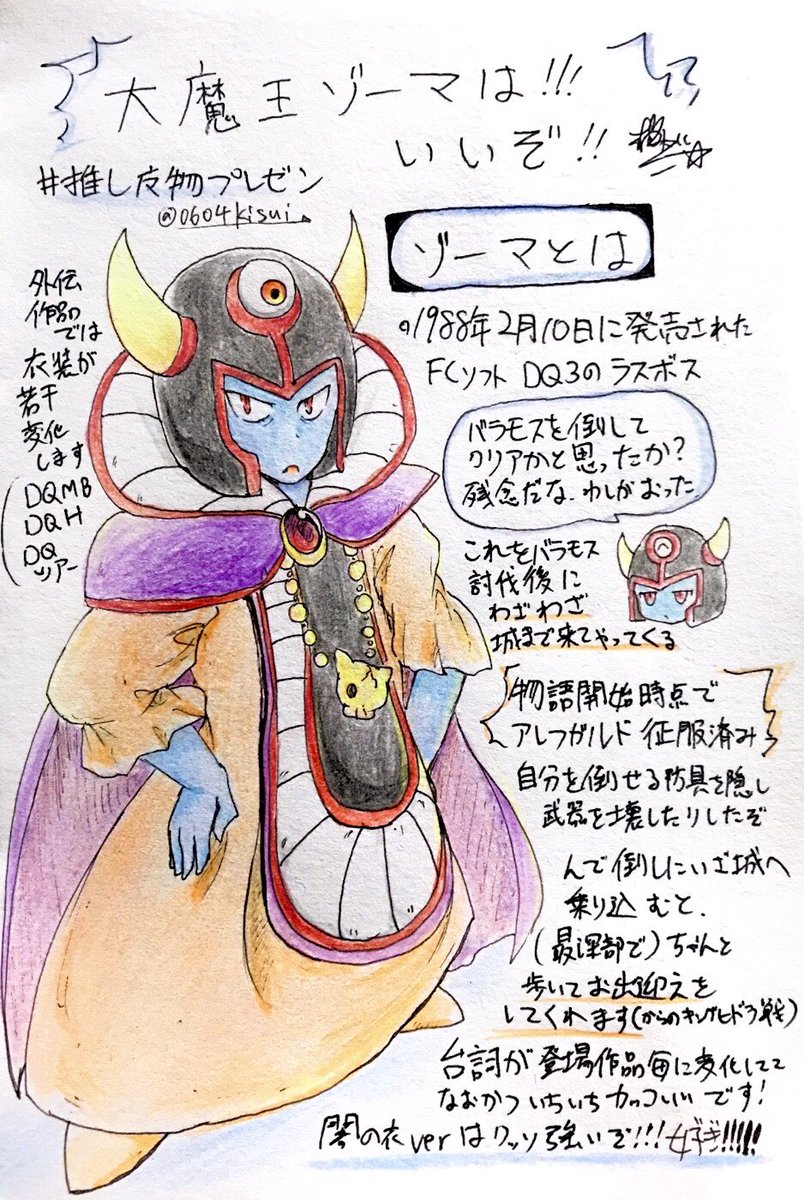 大魔王ゾーマは!!!
いいぞ!!
#推し反物プレゼン
@0604kisui
外伝
作品
では
衣装が
若干
変化
します
(DQMB
DQH
DQ
ツアー)
ゾーマとは
1988年2月10日に発売された
FCソフト DQ3のラスボス
バラモスを倒して
クリアかと思ったか?
残念だな、わしがおった
これをバラモス
討伐後に
わざわざ
城まで来てやってくる
物語開始時点で
アレフガルド征服済み
自分を倒せる防具を隠し
武器を壊したりしたぞ
んで倒しにいざ城へ
乗り込むと、
(最深部で)ちゃんと
歩いてお出迎えを
してくれます(からのキングヒドラ戦)
台詞が登場作品毎に変化してて
なおかついちいちカッコいいです!
闇の衣verはクッソ強いぞ!!!好き!!!!!!